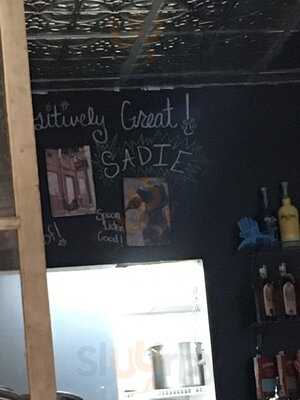 sitively Great!
SADIE
Spoon
Lickin
Good!
f!